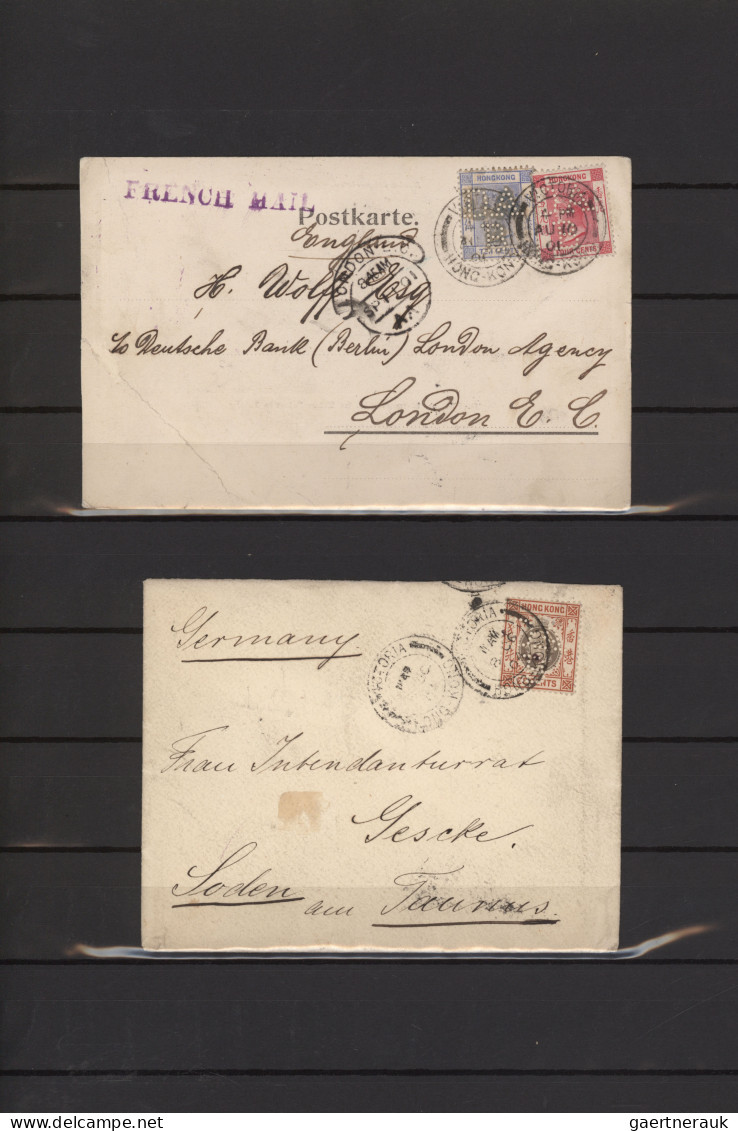 FRENCH MAIL
Postkarte.
HONGKONG
HONGKONG
FOUR CENTS
VICTORIA
AU 10
01
HONG-KONG
England
LONDON E.C.
H. Wolff Esq
c/o Deutsche Bank (Berlin) London Agency
London E. C.
HONG KONG
CENTS
VICTORIA
HONG KONG
VICTORIA
HONG KONG
Germany
Frau Intendanturrat
Gescke.
Soden am Taunus.
gaertnerauk